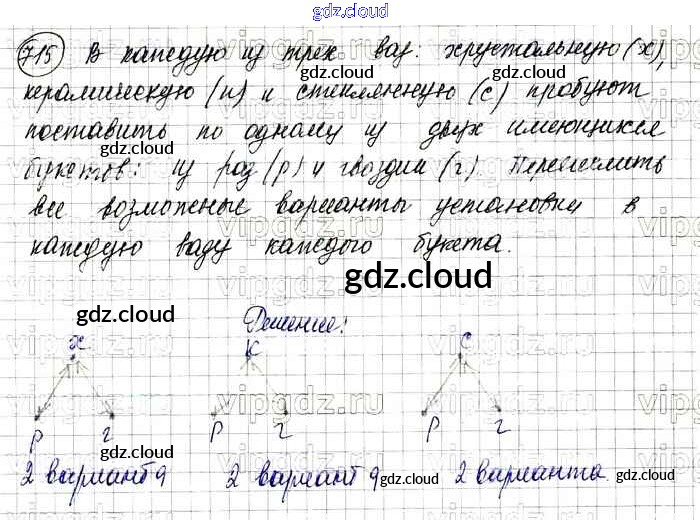 gdz.cloud
715 В каждую из трех ваз: хрустальную (х),
gdz.cloud gdz.cloud
керамическую (к) и стеклянную (с) пробуют
поставить по одному из двух имеющихся
gdz.cloud
букетов: из роз (р) и гвоздик (г). Перечислить
gdz.cloud
все возможные варианты установки в
каждую вазу каждого букета.
gdz.cloud
gdz.cloud Решение:
х К с
gdz.cloud
р г р г р г
gdz.cloud
2 варианта 2 варианта gdz.cloud 2 варианта. gdz.cloud